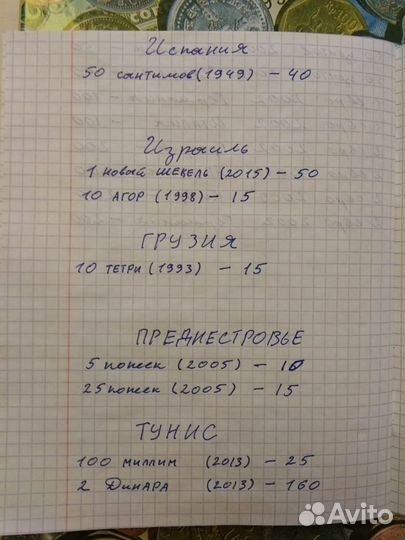 Испания
50 сантимов (1949) - 40
Израиль
1 новый шекель (2015) - 50
10 агор (1998) - 15
ГРУЗИЯ
10 тетри (1993) - 15
ПРЕДНЕСТРОВЬЕ
5 копеек (2005) - 10
25 копеек (2005) - 15
ТУНИС
100 миллим (2013) - 25
2 Динара (2013) - 160
Avito